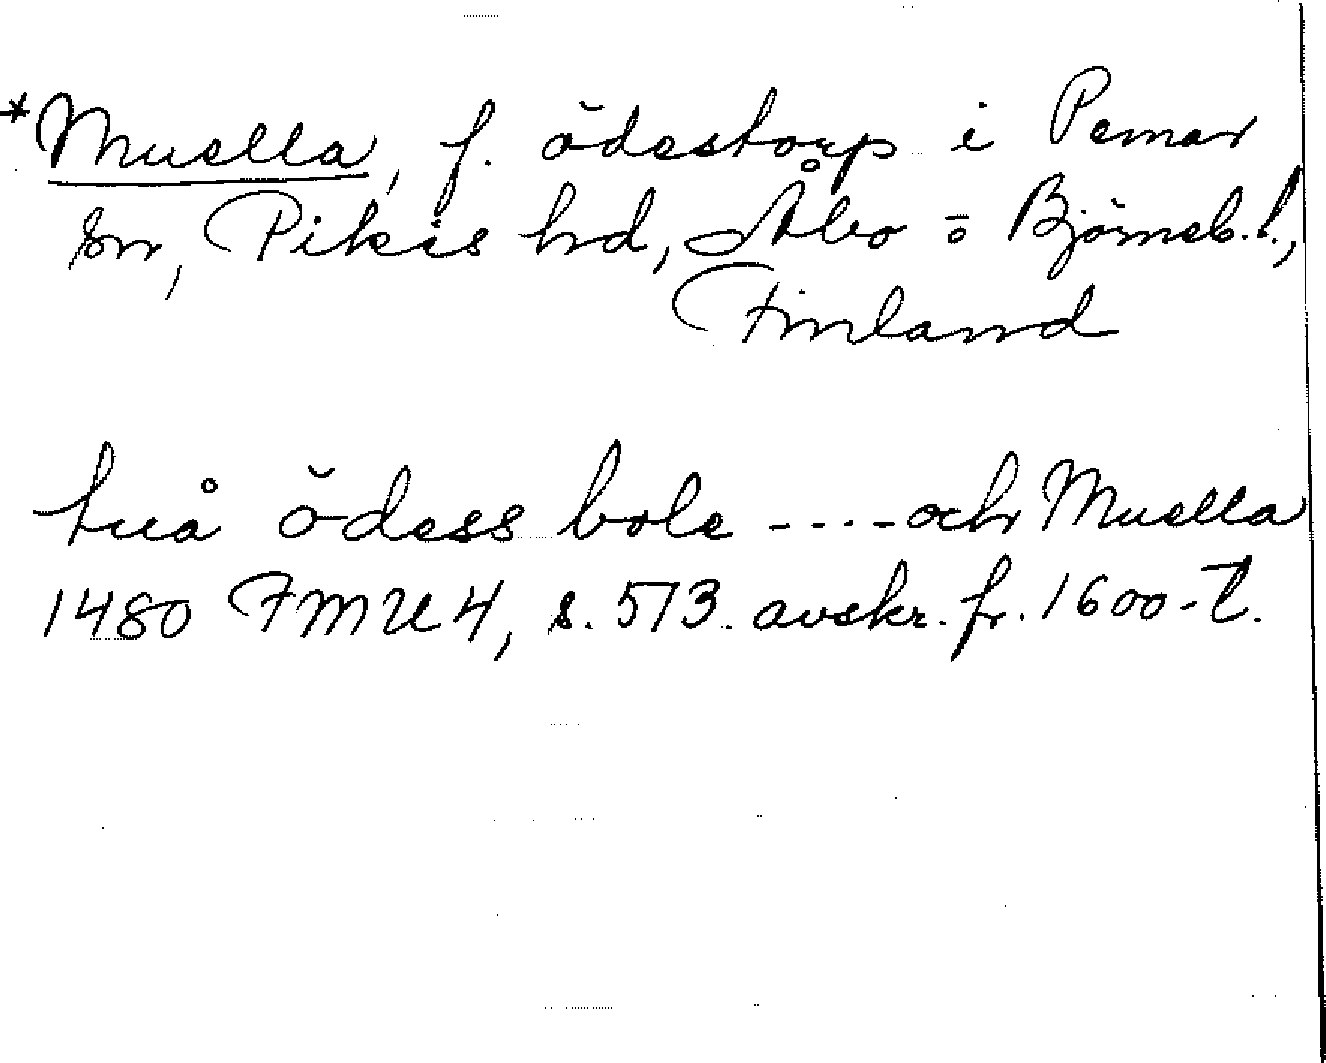 *Muella, f. ödestorp i Pemar
sn, Pikis hd, Åbo o Björneb. l.,
Finland
tuå ödess bole ----och Muella
1480 FMU 4, s. 573. avskr. fr. 1600-t.